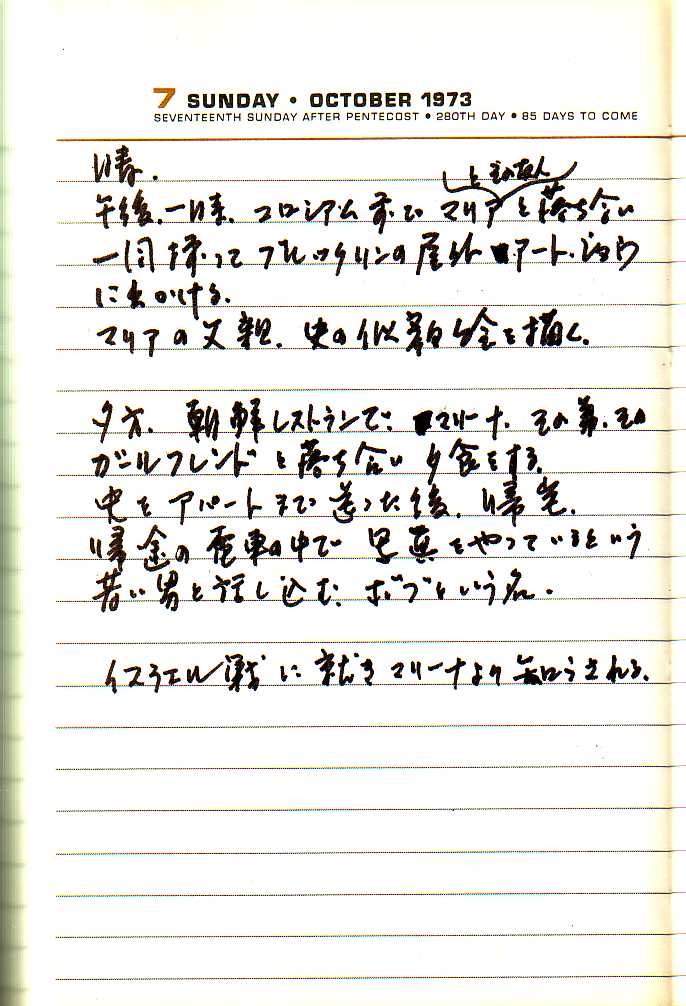 7 SUNDAY • OCTOBER 1973
SEVENTEENTH SUNDAY AFTER PENTECOST • 280TH DAY • 85 DAYS TO COME
晴。
とその友人
午後、一時、コロシアム前でマリアと落ち合い
一同揃ってブルックリンの屋外アート・ショウ
に出かける。
マリアの父親、史の似顔絵を描く。
夕方、朝鮮レストランで、マリーナ、その弟、その
ガールフレンドと落ち合い夕食をする。
史をアパートまで送った後、帰宅。
帰途の電車の中で写真をやっているという
若い男と話し込む。ボブという名。
イスラエル戦に就きマリーナより知らされる。